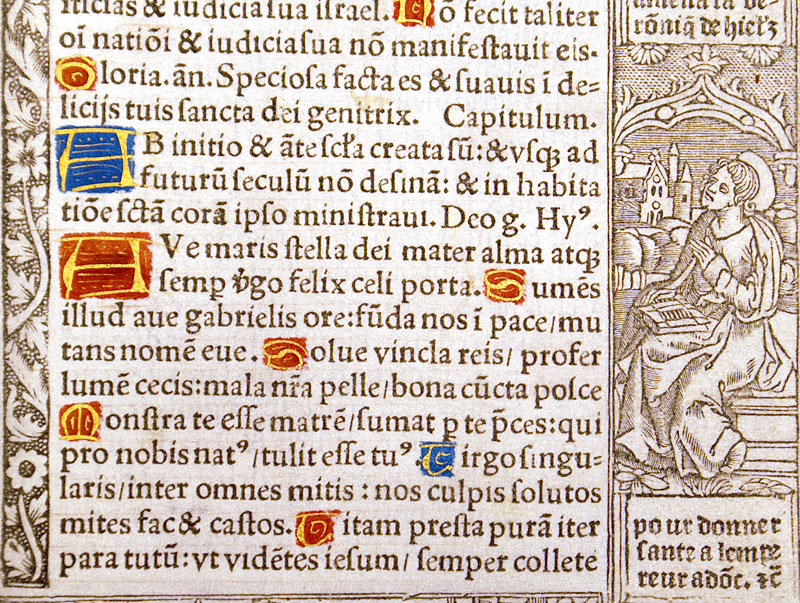 iticias & iudicia sua israel. Nõ fecit taliter
oĩ natiõi & iudicia sua nõ manifestauit eis.
Gloria. ãn. Speciosa facta es & suauis ĩ de=
licijs tuis sancta dei genitrix. Capitulum.
AB initio & ãte scła creata sũ: & vsqꝫ ad
futurũ seculũ nõ desinã: & in habita
tiõe sctã corã ipso ministraui. Deo g. Hyꝰ.
AVe maris stella dei mater alma atqꝫ
semꝑ v̾go felix celi porta. Sumẽs
illud aue gabrielis ore: fũda nos ĩ pace/ mu
tans nomẽ eue. Solue vincla reis/ profer
lumẽ cecis: mala nr̃a pelle/ bona cũcta posce
Monstra te esse matrẽ/ sumat ꝑ te p̃ces: qui
pro nobis natꝰ/ tulit esse tuꝰ. Uirgo singu=
laris/ inter omnes mitis : nos culpis solutos
mites fac & castos. Uitam presta purã iter
para tutũ: vt vidẽtes iesum/ semper collete
rõniq̃ de hierꝫ
pour donner
sante a lempe
reur adõc. ⁊c̃